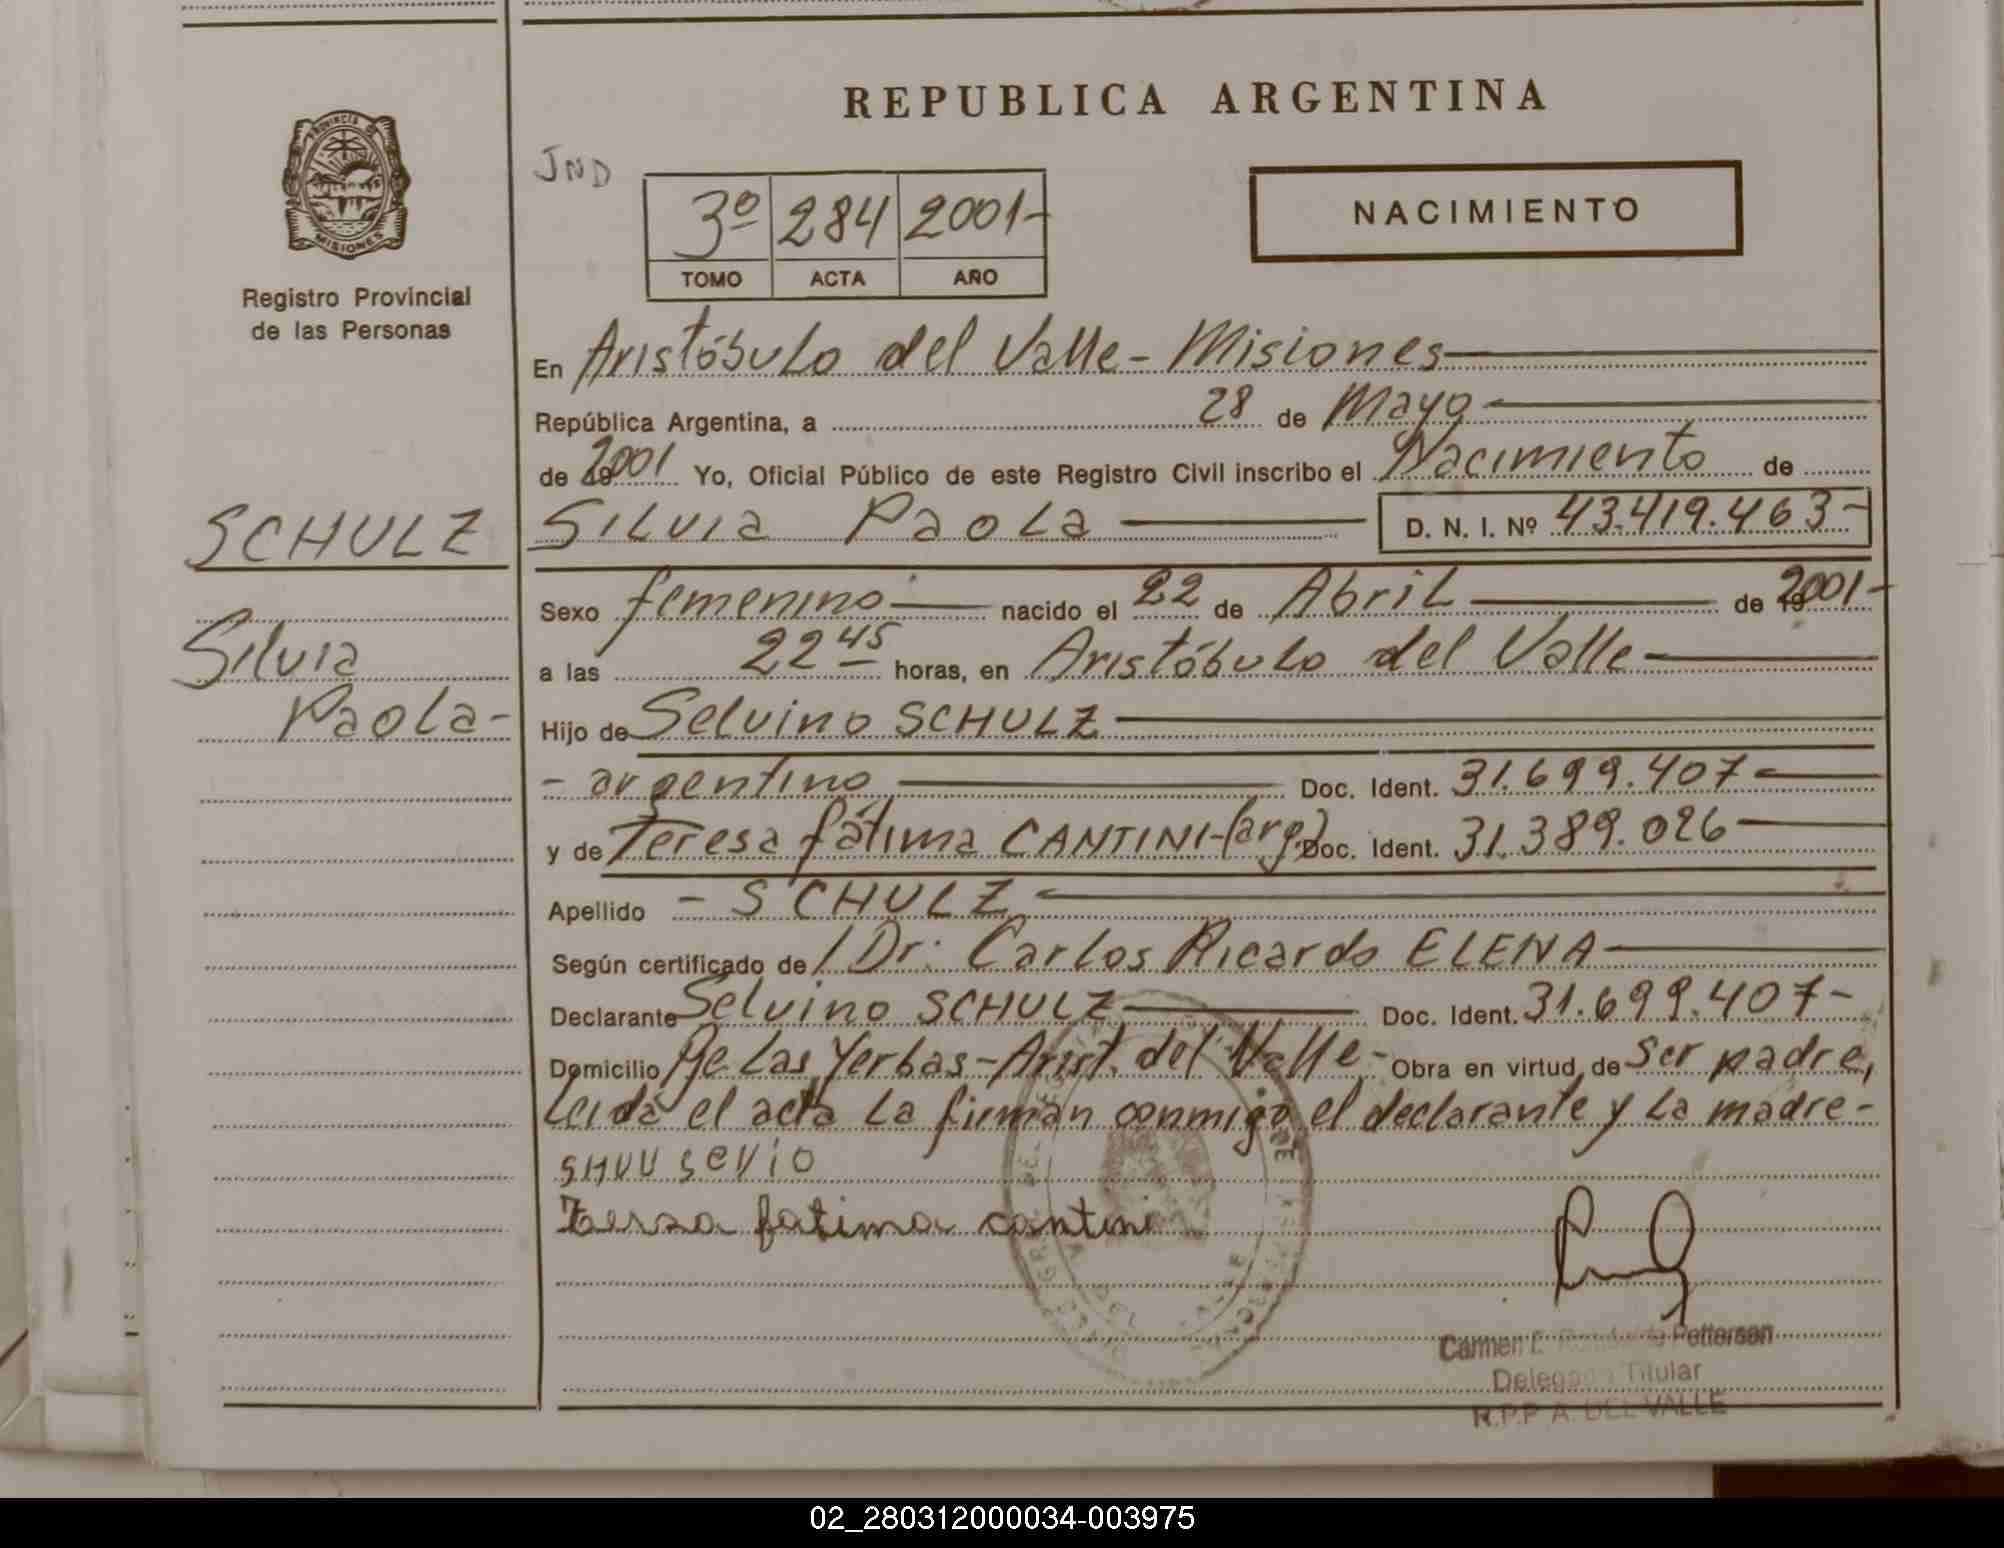 REPUBLICA ARGENTINA
PROVINCIA DE
MISIONES
Registro Provincial
de las Personas
JND
3º 284 2001-
TOMO ACTA AÑO
NACIMIENTO
En Aristóbulo del Valle - Misiones
República Argentina, a 28 de Mayo
de 2001 Yo, Oficial Público de este Registro Civil inscribo el Nacimiento de
SCHULZ
Silvia Paola D. N. I. Nº 43.419.463-
Sexo femenino nacido el 22 de Abril de 2001-
Silvia
Paola-
a las 22 45 horas, en Aristóbulo del Valle
Hijo de Selvino SCHULZ
- argentino Doc. Ident. 31.699.407-
y de Teresa fátima CANTINI-(arg) Doc. Ident. 31.389.026
Apellido - SCHULZ
Según certificado de Dr. Carlos Ricardo ELENA
Declarante Selvino SCHULZ Doc. Ident. 31.699.407-
Domicilio Las Yerbas - Arist. del Valle - Obra en virtud de ser padre,
Leida el acta la firman conmigo el declarante y la madre-
fatima cantini
Carmen Petterson
Delegado Titular
R.P.P A. DEL VALLE
02_280312000034-003975